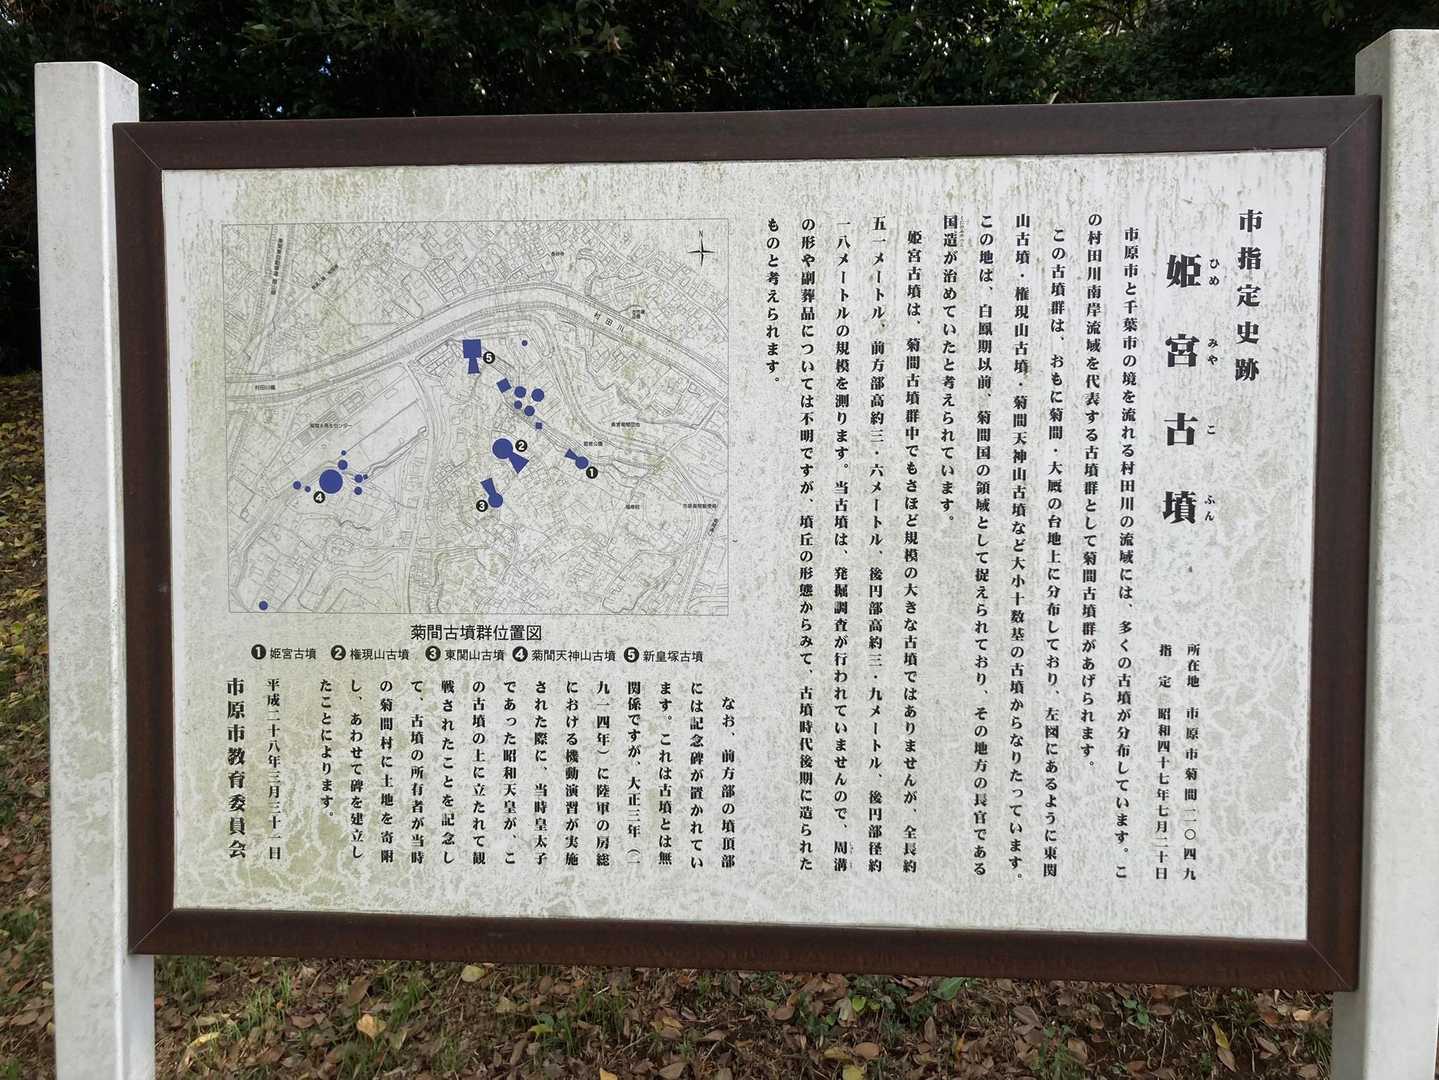 市指定史跡
姫宮古墳
ひめ みや こ ふん
所在地 市原市菊間二一〇四九
指 定 昭和四十七年七月二十日
市原市と千葉市の境を流れる村田川の流域には、多くの古墳が分布しています。こ
の村田川南岸流域を代表する古墳群として菊間古墳群があげられます。
この古墳群は、おもに菊間・大厩の台地上に分布しており、左図にあるように東関
山古墳・権現山古墳・菊間天神山古墳など大小十数基の古墳からなりたっています。
この地は、白鳳期以前、菊間国の領域として捉えられており、その地方の長官である
国造が治めていたと考えられています。
姫宮古墳は、菊間古墳群中でもさほど規模の大きな古墳ではありませんが、全長約
五一メートル、前方部高約三・六メートル、後円部高約三・九メートル、後円部径約
一八メートルの規模を測ります。当古墳は、発掘調査が行われていませんので、周溝
の形や副葬品については不明ですが、墳丘の形態からみて、古墳時代後期に造られた
ものと考えられます。
N
村田川
村田川橋
菊間古墳群位置図
❶姫宮古墳 ❷権現山古墳 ❸東関山古墳 ❹菊間天神山古墳 ❺新皇塚古墳
なお、前方部の墳頂部
には記念碑が置かれてい
ます。これは古墳とは無
関係ですが、大正三年(一
九一四年)に陸軍の房総
における機動演習が実施
された際に、当時皇太子
であった昭和天皇が、こ
の古墳の上に立たれて観
戦されたことを記念し
て、古墳の所有者が当時
の菊間村に土地を寄附
し、あわせて碑を建立し
たことによります。
平成二十八年三月三十一日
市原市教育委員会